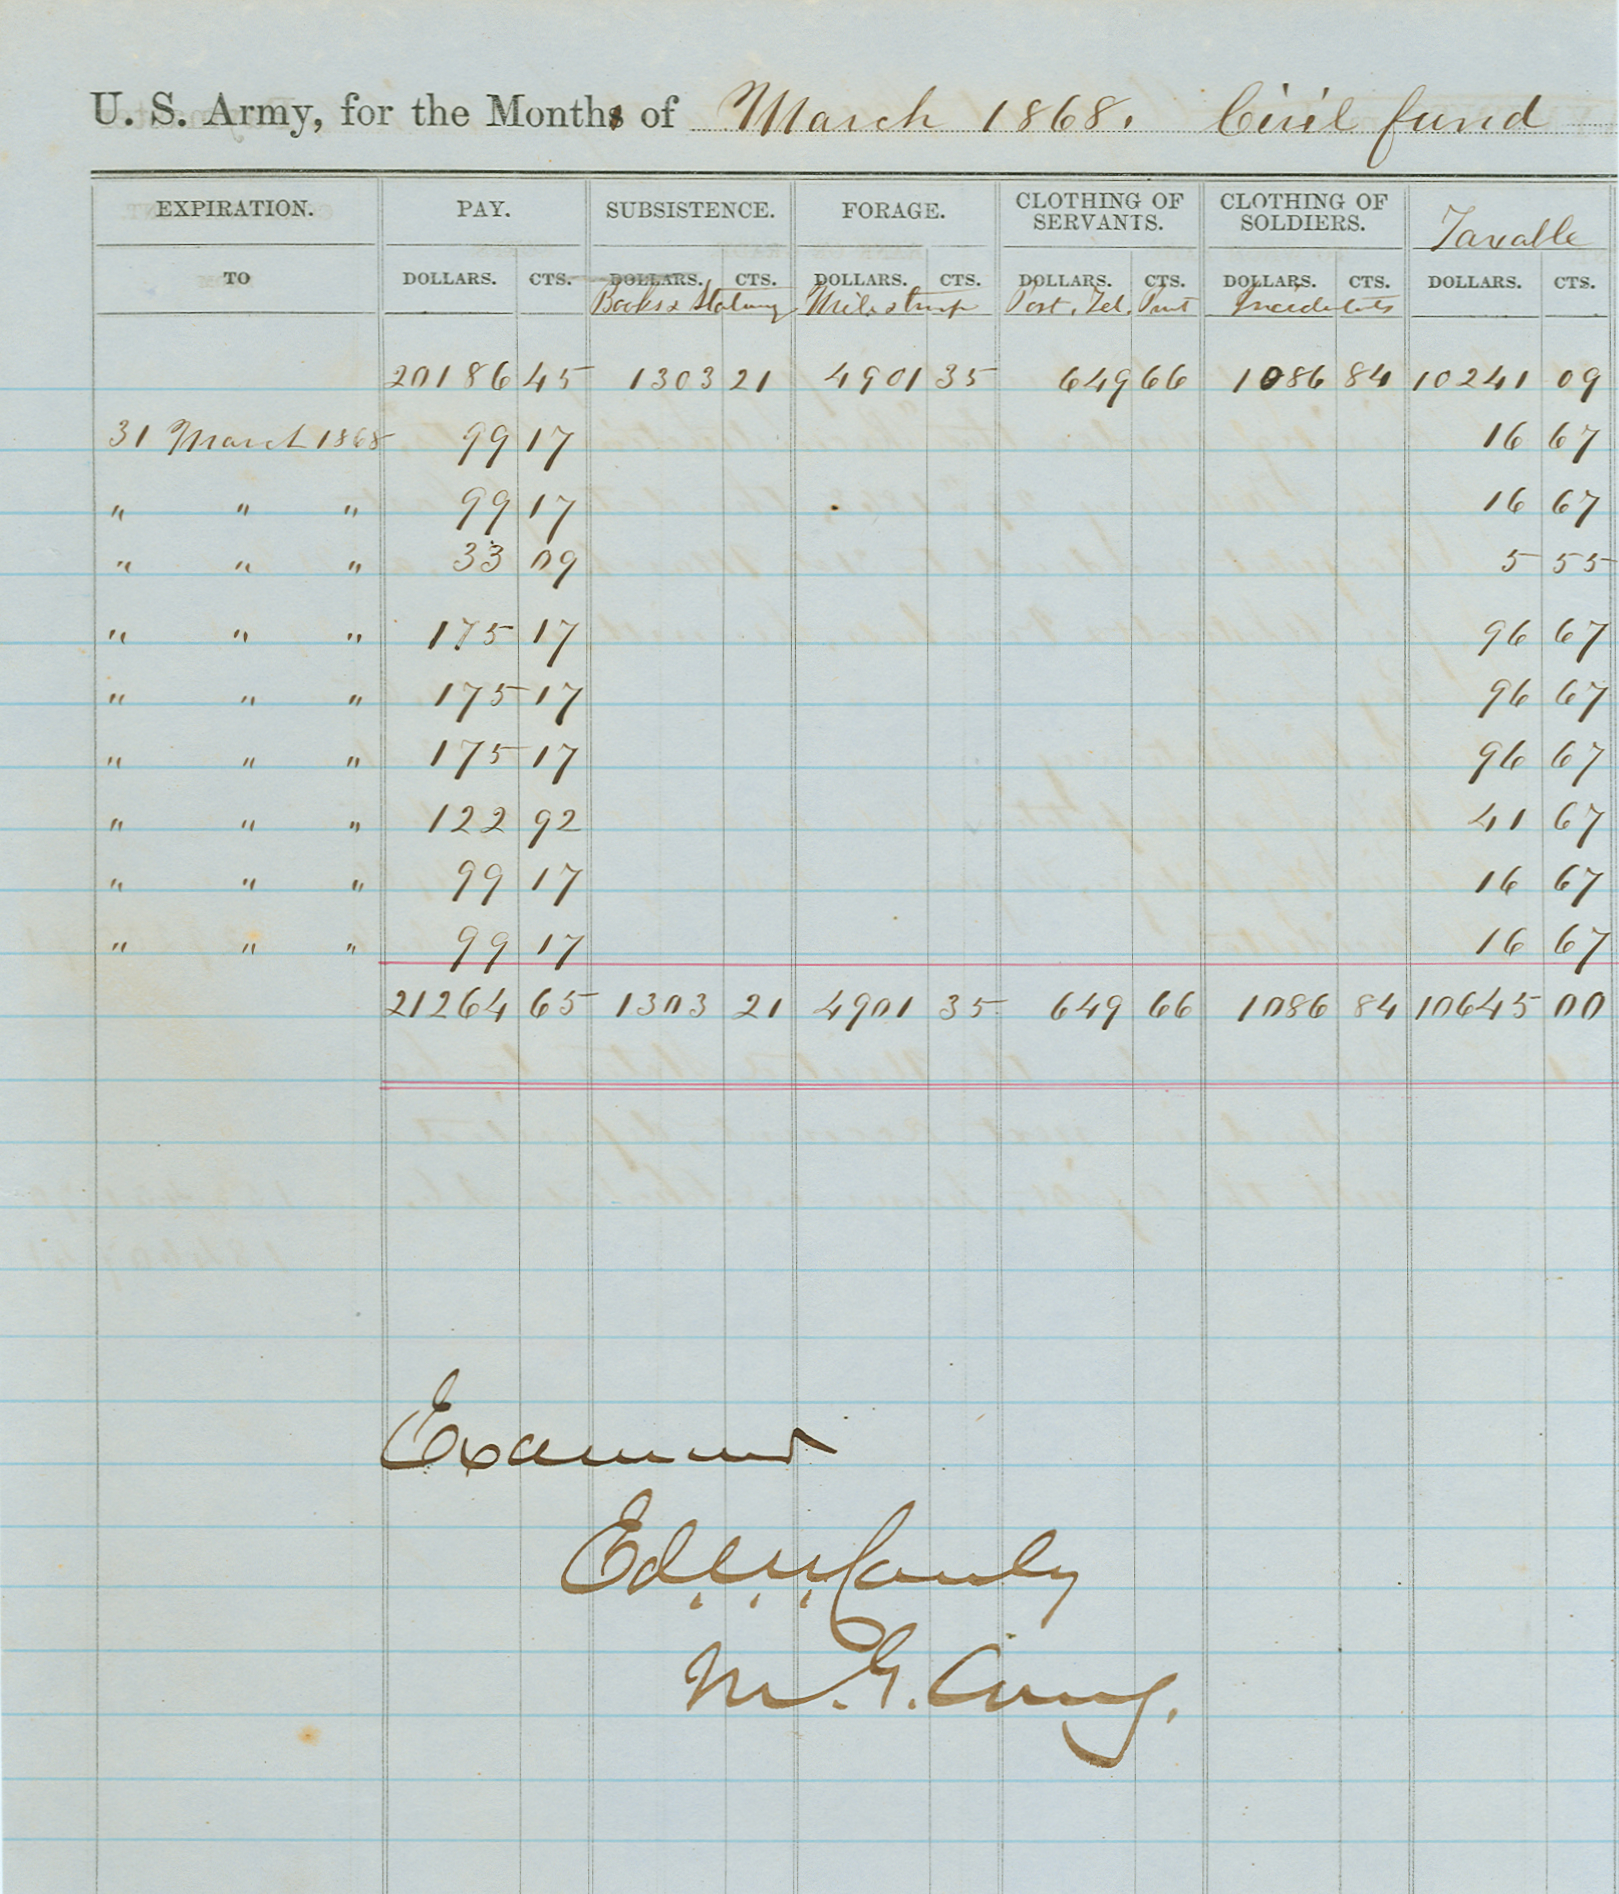 U. S. Army, for the Months of March 1868. Civil fund
EXPIRATION. PAY. SUBSISTENCE. FORAGE. CLOTHING OF SERVANTS. CLOTHING OF SOLDIERS. Taxable
TO DOLLARS. CTS. DOLLARS. CTS. DOLLARS. CTS. DOLLARS. CTS. DOLLARS. CTS. DOLLARS. CTS.
Books & Mile & Post. Tel. Incidentals
20186 45 1303 21 4901 35 649 66 1086 84 10241 09
31 March 1868 99 17 16 67
" " " 99 17 16 67
" " " 33 09 5 55
" " " 175 17 96 67
" " " 175 17 96 67
" " " 175 17 96 67
" " " 122 92 41 67
" " " 99 17 16 67
" " " 99 17 16 67
21264 65 1303 21 4901 35 649 66 1086 84 10645 00
Examined
Ed.
M. G. Comg.